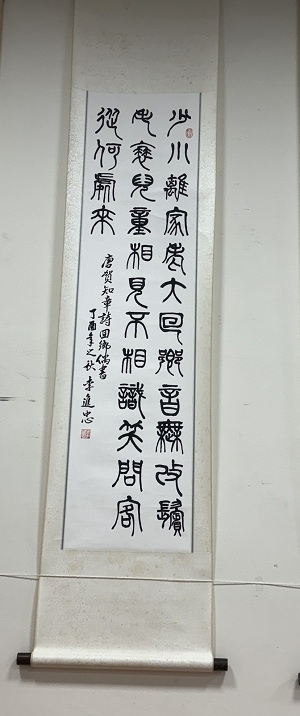 少小離家老大回鄉音無改鬢
毛衰兒童相見不相識笑問客
從何處來
唐賀知章詩回鄉偶書
丁酉年之秋 李進忠